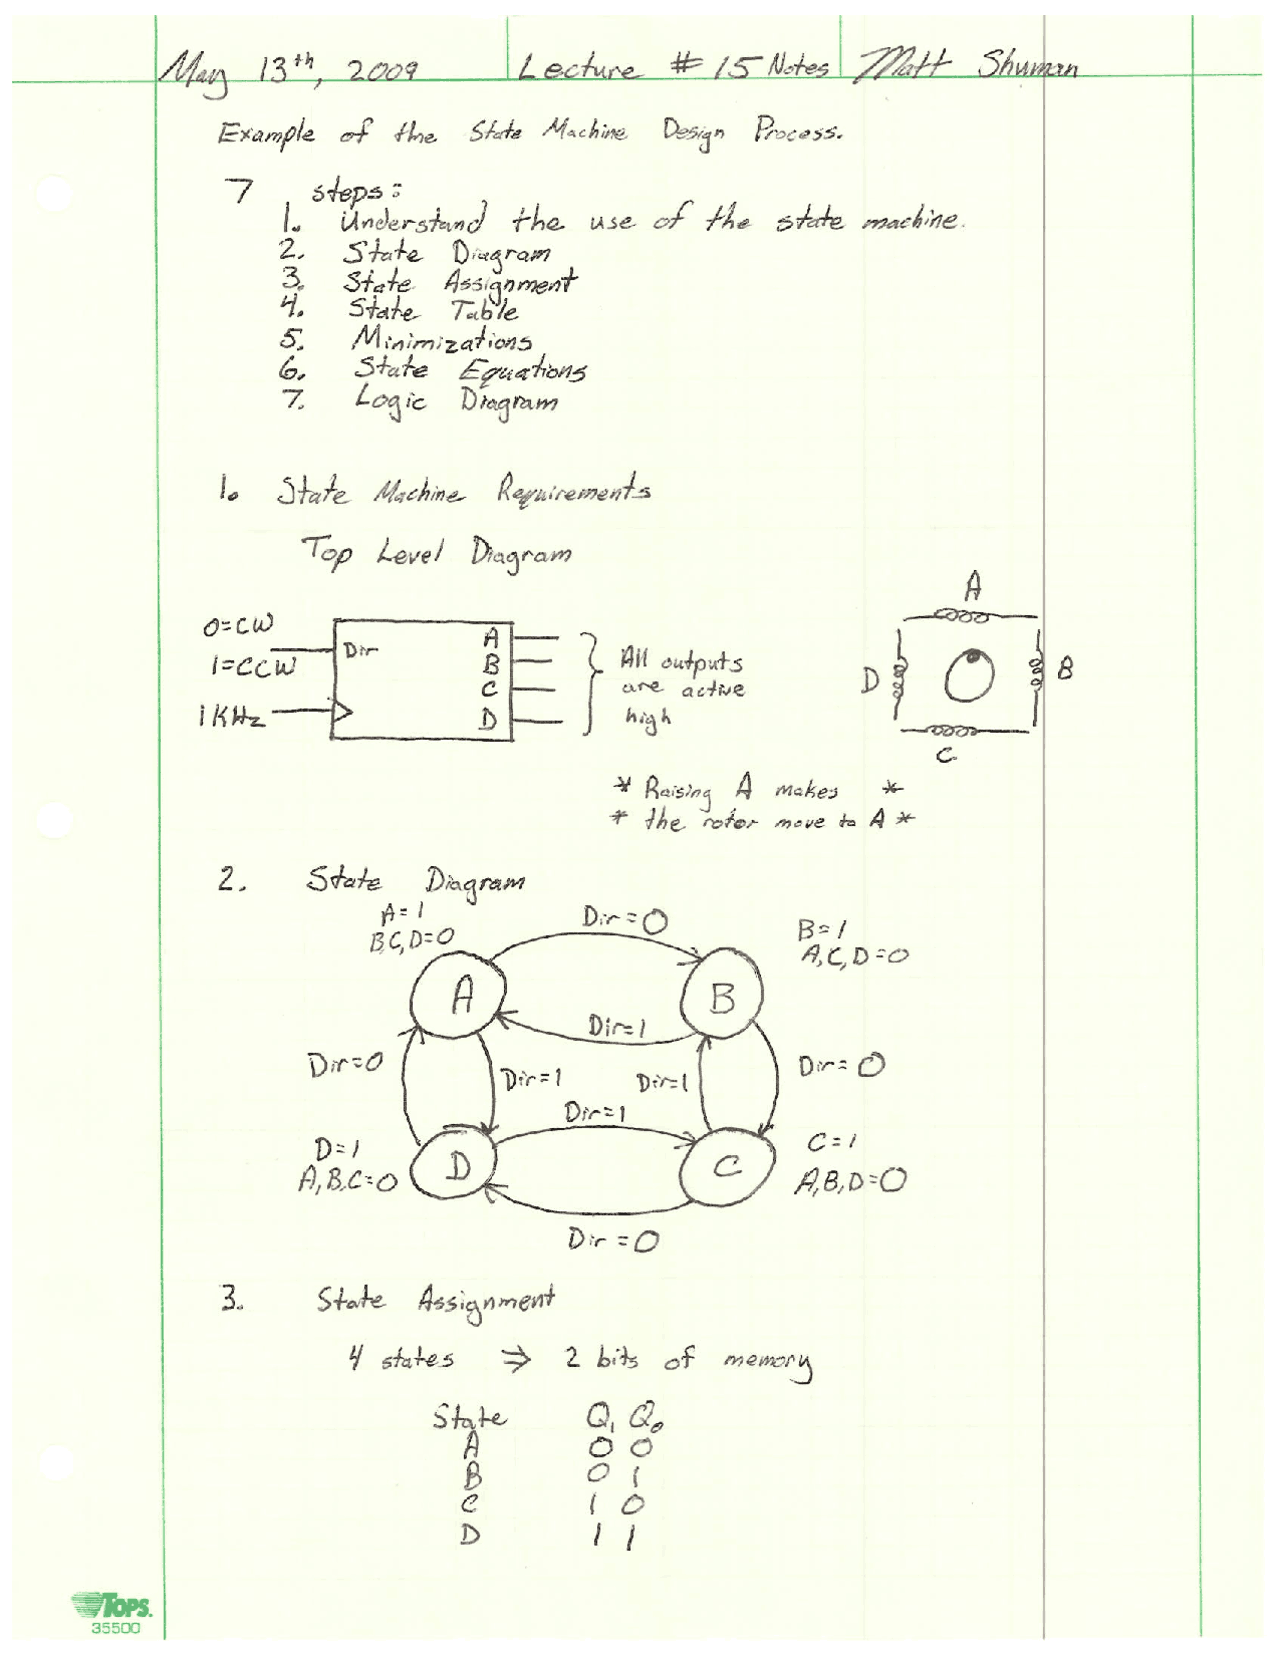 May 13th, 2009 Lecture # 15 Notes Matt Shuman
Example of the State Machine Design Process.
7 steps:
1. Understand the use of the state machine.
2. State Diagram
3. State Assignment
4. State Table
5. Minimizations
6. State Equations
7. Logic Diagram
1. State Machine Requirements
Top Level Diagram
0=CW
1=CCW
1KHz
Dir
A
B
C
D
All outputs
are active
high
A
B
D
C
* Raising A makes *
* the rotor move to A *
2. State Diagram
A=1
B,C,D=0
Dir=0
B=1
A,C,D=0
A
B
Dir=1
Dir=0
Dir=1
Dir=1
Dir=0
Dir=1
D=1
A,B,C=0
D
C
C=1
A,B,D=0
Dir=0
3. State Assignment
4 states ⇒ 2 bits of memory
State Q₁ Q₀
A 0 0
B 0 1
C 1 0
D 1 1
TOPS.
35500